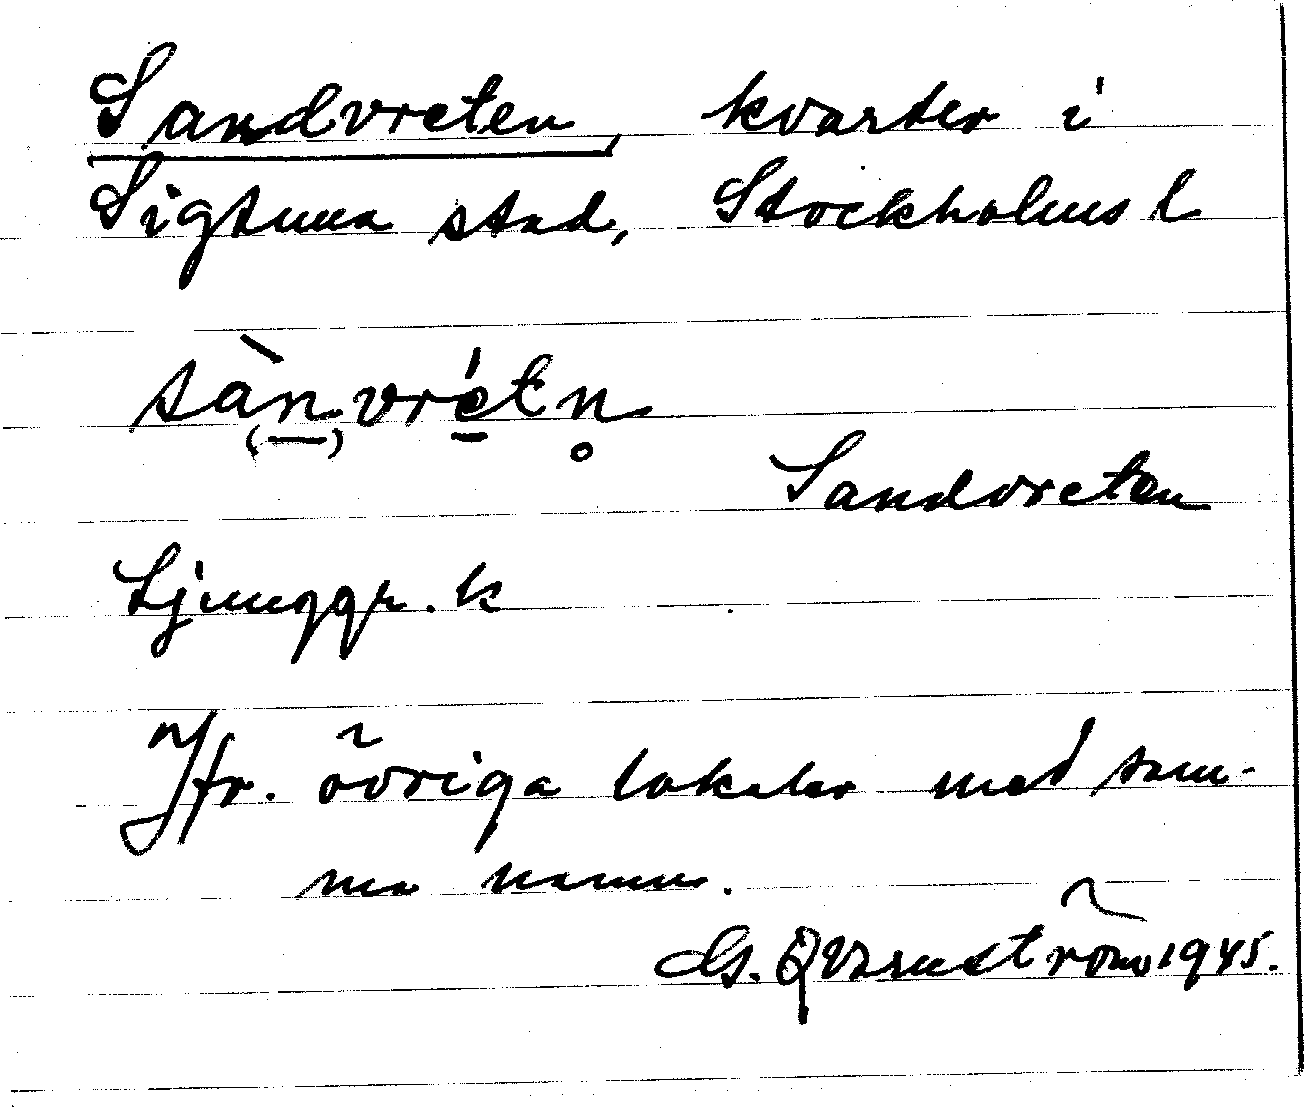 Sandvreten, kvarter i
Sigtuna stad, Stockholms l
sàn vrétn̥
Sandvreten
Ljunggr. k
Jfr. övriga lokaler med sam-
ma namn.
G. Qvarnström 1945.